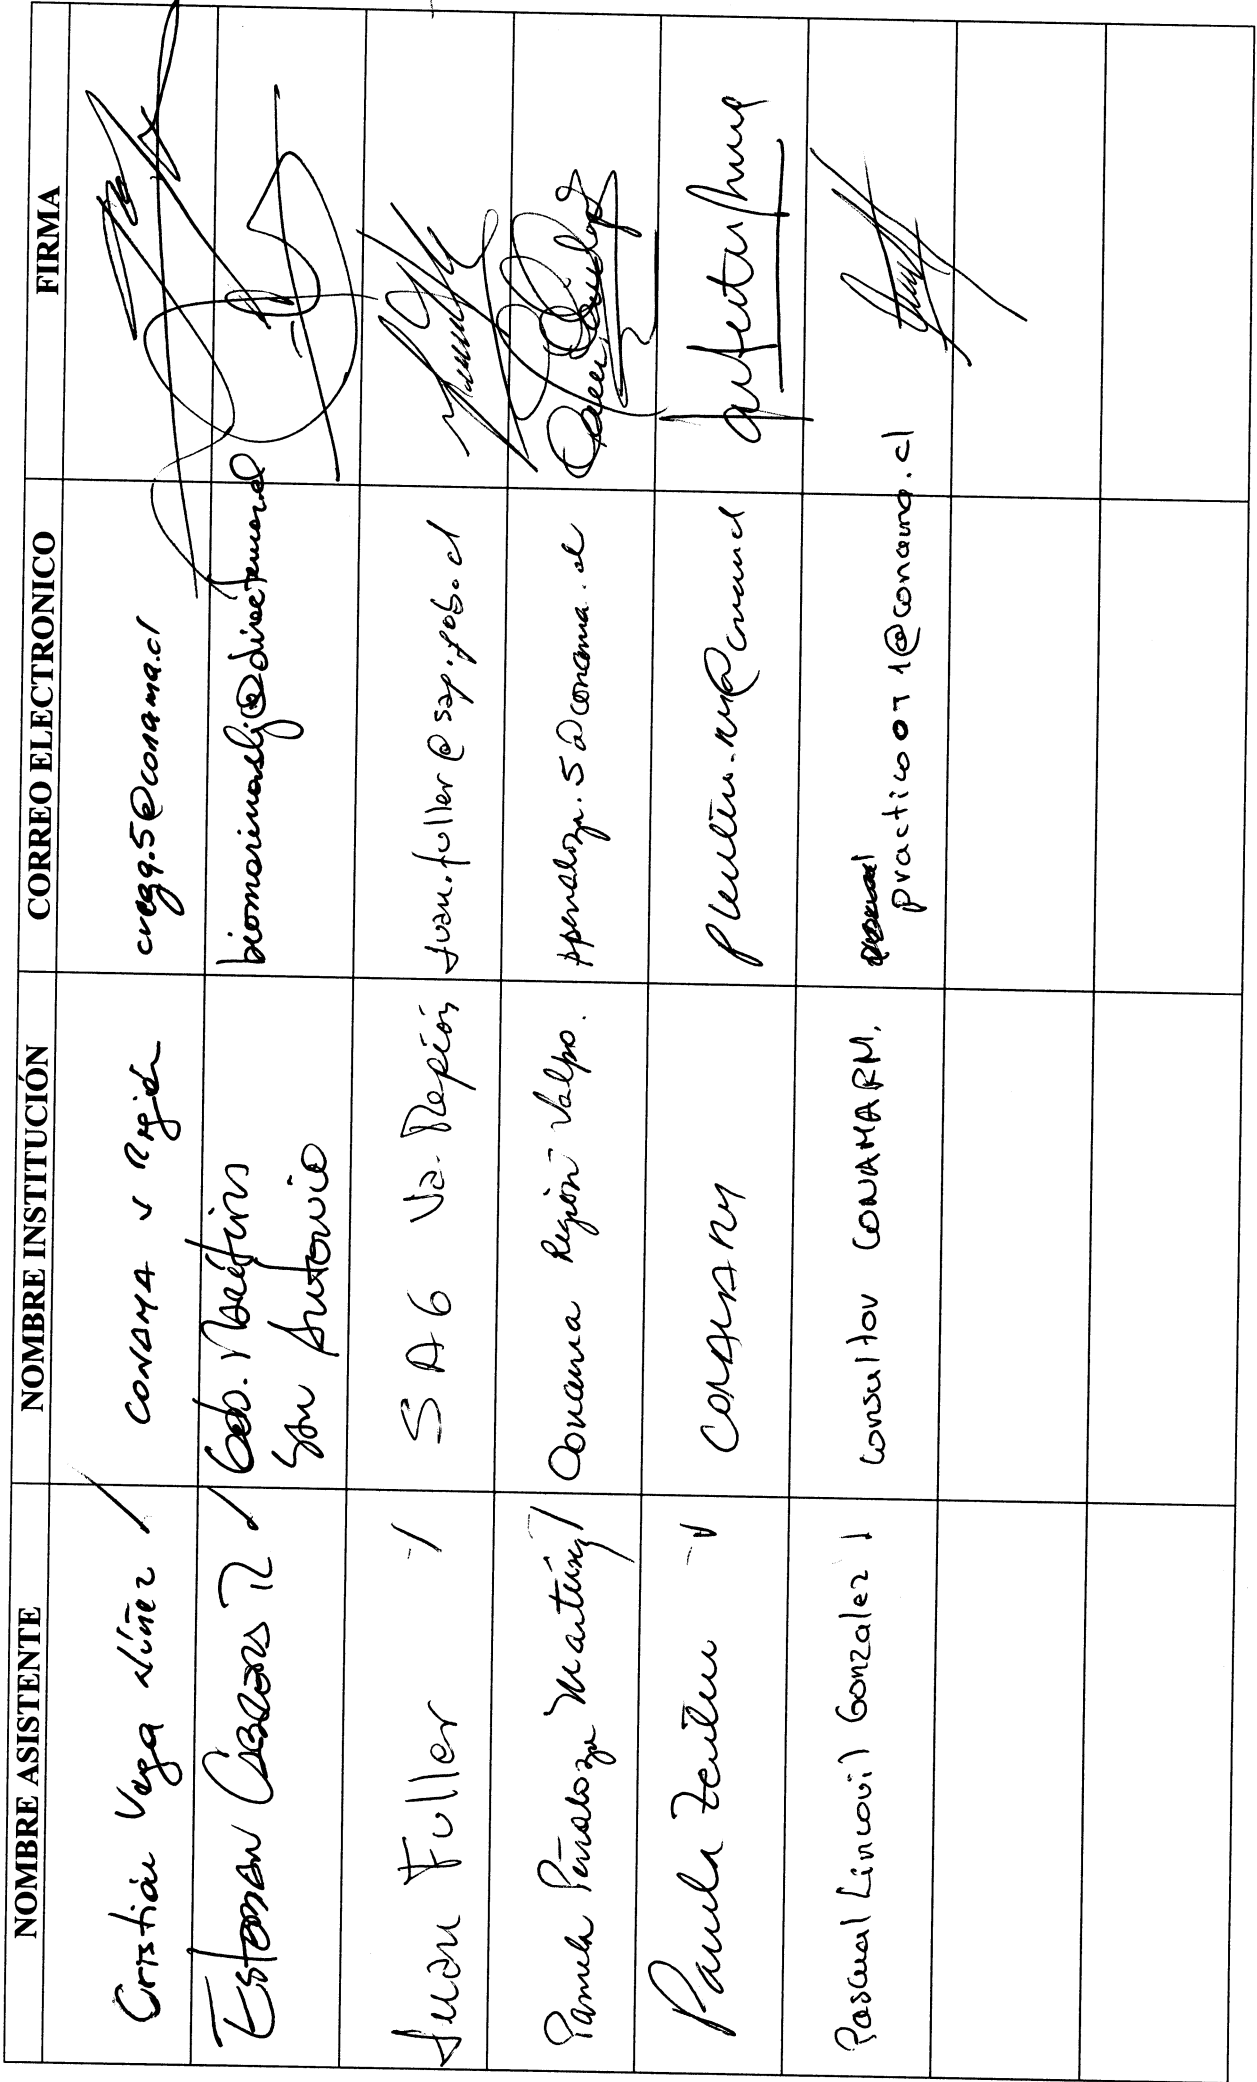 NOMBRE ASISTENTE NOMBRE INSTITUCIÓN CORREO ELECTRONICO FIRMA
Cristián Vega Núñez CONAMA V Región cvega.5@conama.cl
Esteban R Gob. Marítima
San Antonio
Juan Fuller SAG Va. Región juan.fuller@sag.gob.cl
Pamela Peñaloza Martínez Conama Región Valpo. ppenaloza.5@conama.cl
Paula CONAMA
Pascual Lincovil Gonzalez Consultor CONAMA RM. practico01@conama.cl